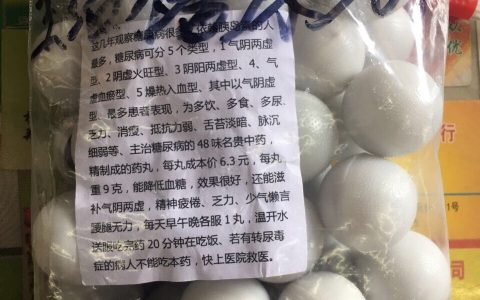 这几年观察糖尿病很多
的人
最多，糖尿病可分５个类型，１气阴两虚
型、２阴虚火旺型、３阴阳两虚型、４、气
虚血瘀型、５燥热入血型、其中以气阴虚
型、最多患者表现，为多饮、多食、多尿、
乏力、消瘦、抵抗力弱、舌苔淡暗、脉沉
细弱等、主治糖尿病的 48 味名贵中药，
精制成的药丸，每丸成本价 6.3 元，每丸
重９克，能降低血糖，效果很好，还能滋
补气阴两虚，精神疲倦、乏力、少气懒言
腰腿无力，每天早午晚各服１丸，温开水
送服吃完药 20 分钟在吃饭、若有转尿毒
症的病人不能吃本药，快上医院救医。
优
行
1号